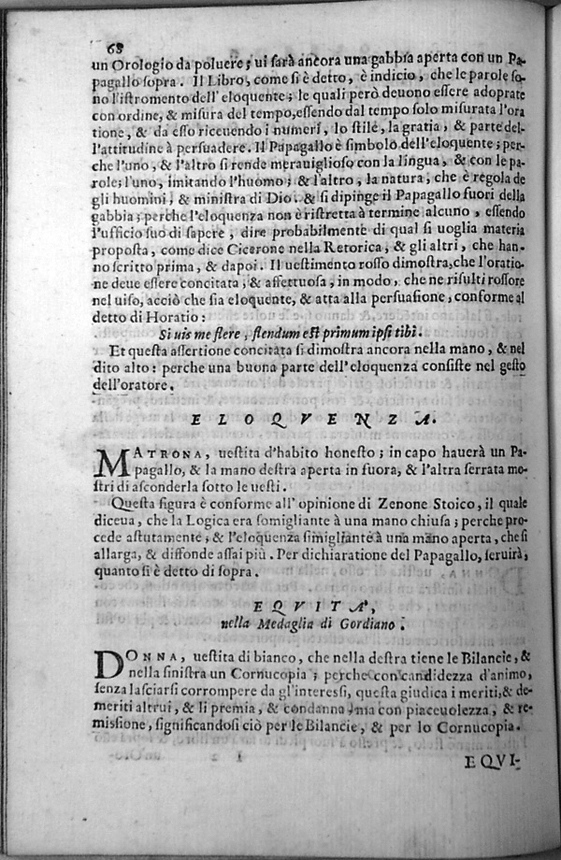 68
un Orologio da poluere; ui sarà ancora una gabbia aperta con un Pa-
pagallo sopra. Il Libro, come si è detto, è indicio, che le parole so-
no l'istromento dell'eloquente; le quali però deuono essere adoprate
con ordine, & misura del tempo, essendo dal tempo solo misurata l'ora
tione, & da esso riceuendo i numeri, lo stile, la gratia, & parte del-
l'attitudine à persuadere. Il Papagallo è simbolo dell'eloquente; per-
che l'uno, & l'altro si rende merauiglioso con la lingua, & con le pa-
role; l'uno, imitando l'huomo; & l'altro, la natura, che è regola de
gli huomini, & ministra di Dio. & si dipinge il Papagallo fuori della
gabbia; perche l'eloquenza non è ristretta à termine alcuno, essendo
l'ufficio suo di sapere, dire probabilmente di qual si uoglia materia
proposta, come dice Cicerone nella Retorica, & gli altri, che han-
no scritto prima, & dapoi. Il uestimento rosso dimostra, che l'oratio-
ne deue essere concitata, & affettuosa, in modo, che ne risulti rossore
nel uiso, acciò che sia eloquente, & atta alla persuasione, conforme al
detto di Horatio:
Si uis me flere, flendum est primum ipsi tibi.
Et questa assertione concitata si dimostra ancora nella mano, & nel
dito alto: perche una buona parte dell'eloquenza consiste nel gesto
dell'oratore.
ELOQVENZA.
MATRONA, uestita d'habito honesto; in capo hauerà un Pa-
pagallo, & la mano destra aperta in fuora, & l'altra serrata mo-
stri di asconderla sotto le uesti.
Questa figura è conforme all'opinione di Zenone Stoico, il quale
diceua, che la Logica era somigliante à una mano chiusa; perche pro-
cede astutamente, & l'eloquenza simigliante à una mano aperta, che si
allarga, & diffonde assai più. Per dichiaratione del Papagallo, seruirà,
quanto si è detto di sopra.
EQVITÀ,
nella Medaglia di Gordiano.
DONNA, uestita di bianco, che nella destra tiene le Bilancie, &
nella sinistra un Cornucopia; perche con candidezza d'animo,
senza lasciarsi corrompere da gl'interessi, questa giudica i meriti, & de-
meriti altrui, & li premia, & condanna, ma con piaceuolezza, & re-
missione, significandosi ciò per le Bilancie, & per lo Cornucopia.
EQVI-